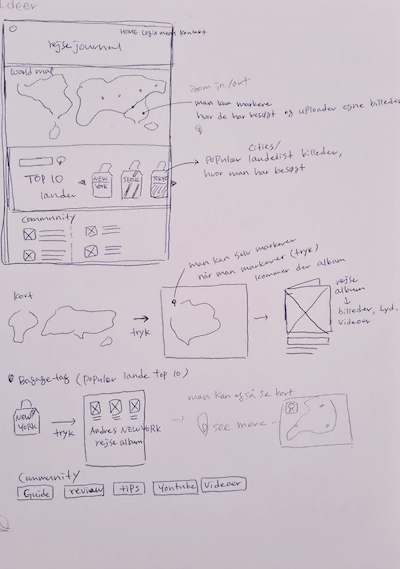 Ideer
HOME Login menu Kontakt
rejsejournal
World map
zoom in/out
man kan markere
hvor de har besøgt og uploader egne billeder
TOP 10
lander
NEW
YORK
SEOUL
TOKYO
cities/
populær landedist billeder,
hvor man har besøgt
Community
man kan selv markerer
når man markerer (tryk)
kommer der album
kort
tryk
rejse
album
billeder, lyd,
videoer
Bagage-tag (populær lande top 10)
NEW
YORK
tryk
Andres NEW YORK
rejse album
man kan også se kort
see more..
Community
Guide
review
tips
Youtube
Videoer